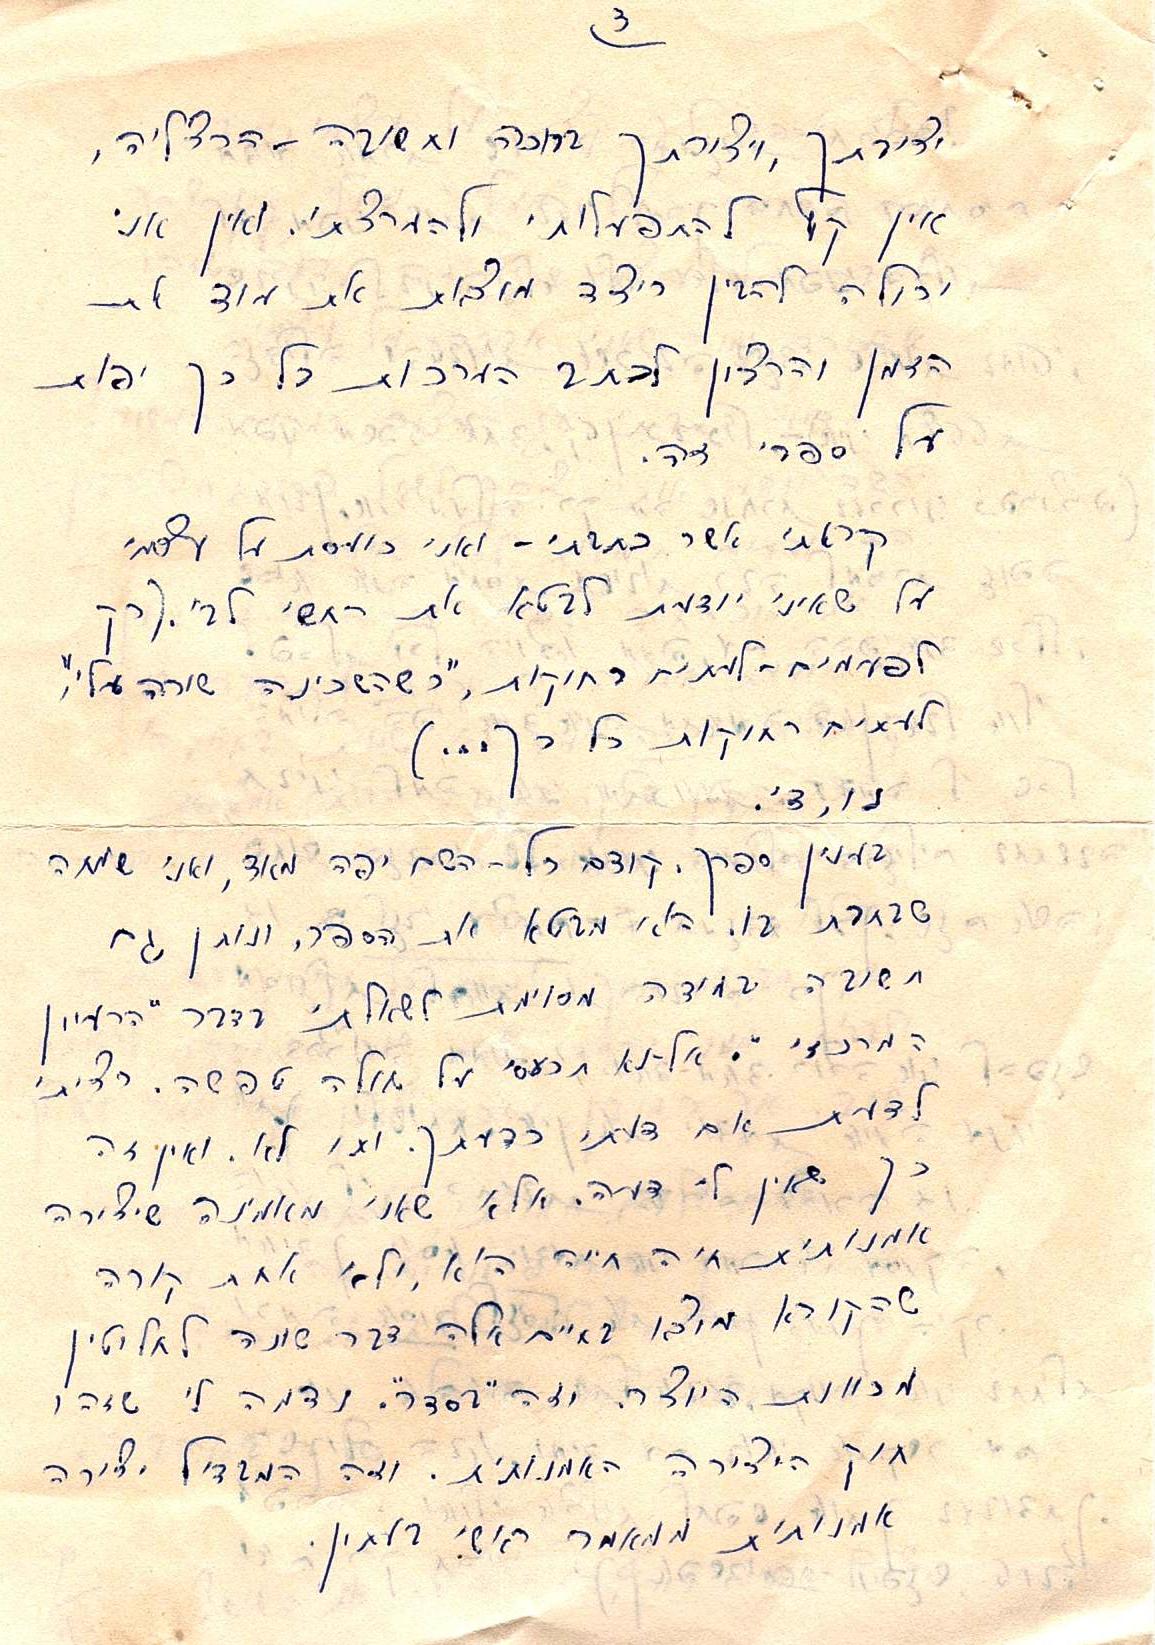 3
יצירתך, ויצירתך ברוכה וחשובה - הרצליה,
אין קץ להתפעלותי ולהערצתי. ואין אני
יכולה להבין כיצד מוצאת את עוד את
הזמן והרצון לכתב הערכות כל כך יפות
על ספרי זה.
קראתי אשר כתבתי - ואני כועסת על עצמי
על שאיני יודעת לבטא את רחשי לבי. (רק
לפעמים - לעתים רחוקות, "כשהשכינה שורה עלי",
לעתים רחוקות כל כך...)
נו, די.
בענין ספרך. קודם כל - השם יפה מאוד, ואני שמחה
שבחרת בו. הוא מבטא את הספר, ונותן גם
תשובה במידה מסוימת לשאלתי בדבר "הרעיון
המרכזי". אל-נא תכעסי על שאלה טפשה. רציתי
לדעת אם דעתי כדעתך. ותו לא. ואין זה
כך שאין לי דעה. אלא שאני מאמינה שיצירה
אמנותית חיה חייה היא, ולא אחת קורה
שהקורא מוצא באיים אלה דבר שונה לחלוטין
מכוונת היוצר. וזה "בסדר". נדמה לי שזהו
חוק היצירה האמנותית. וזה המבדיל יצירה
אמנותית ממאמר ראשי בעתון.